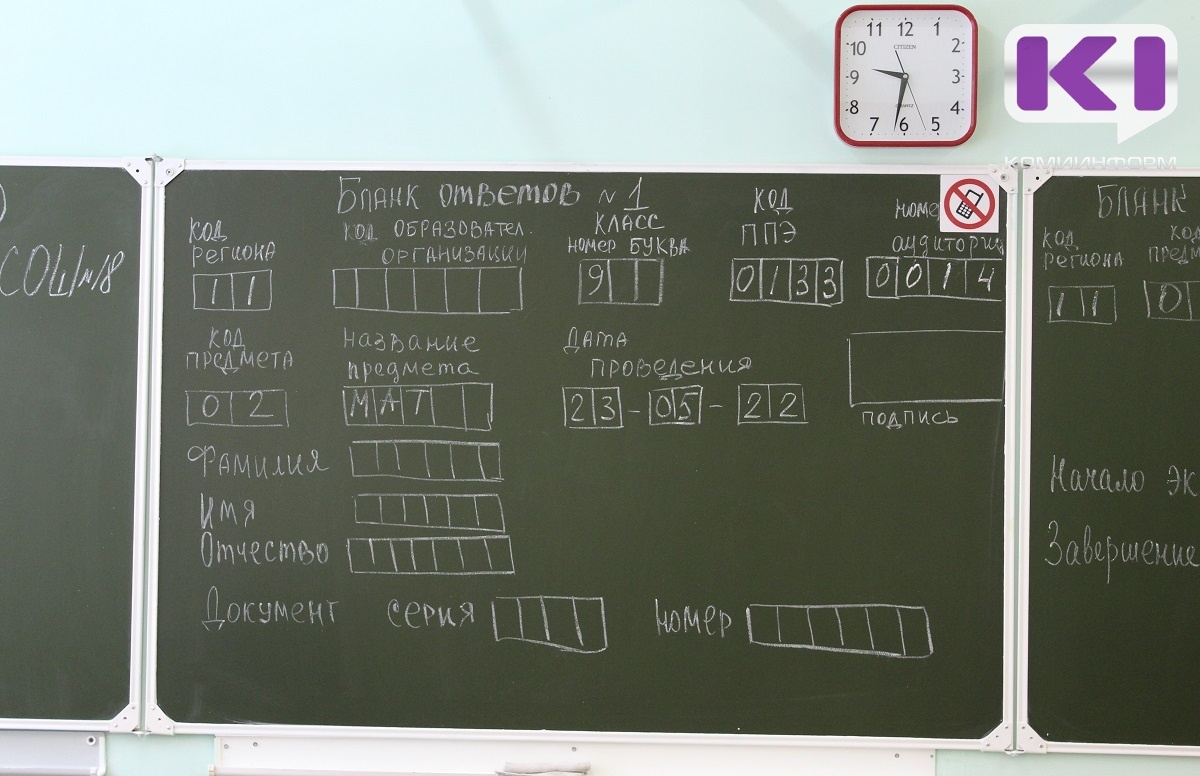 КІ
КОМИИНФОРМ
11 12 1
10 2
CITIZEN
9 3
QUARTZ
8 4
7 6 5
СОШ №18
Бланк ответов №1
код региона
11
код образовател. организации
класс
номер буква
9
код ППЭ
0133
номе
аудитории
0014
код предмета
02
Название предмета
МАТ
Дата проведения
23-05-22
подпись
Фамилия
Имя
Отчество
Документ серия номер
Бланк
код региона
11
код
предм
0
Начало эк
Завершение